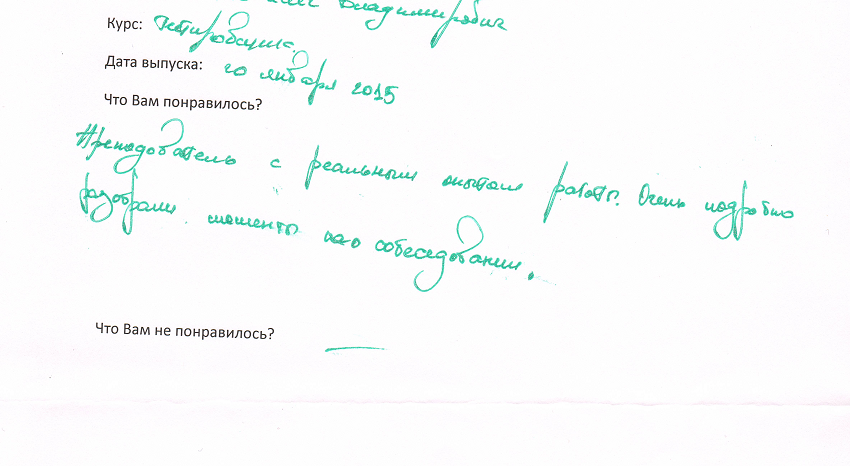 Владимирович
Курс: Тестировщик.
Дата выпуска: 20 января 2015
Что Вам понравилось?
Преподователь с реальным опытом работы. Очень подробно
разобрали моменты по собеседовании.
Что Вам не понравилось?